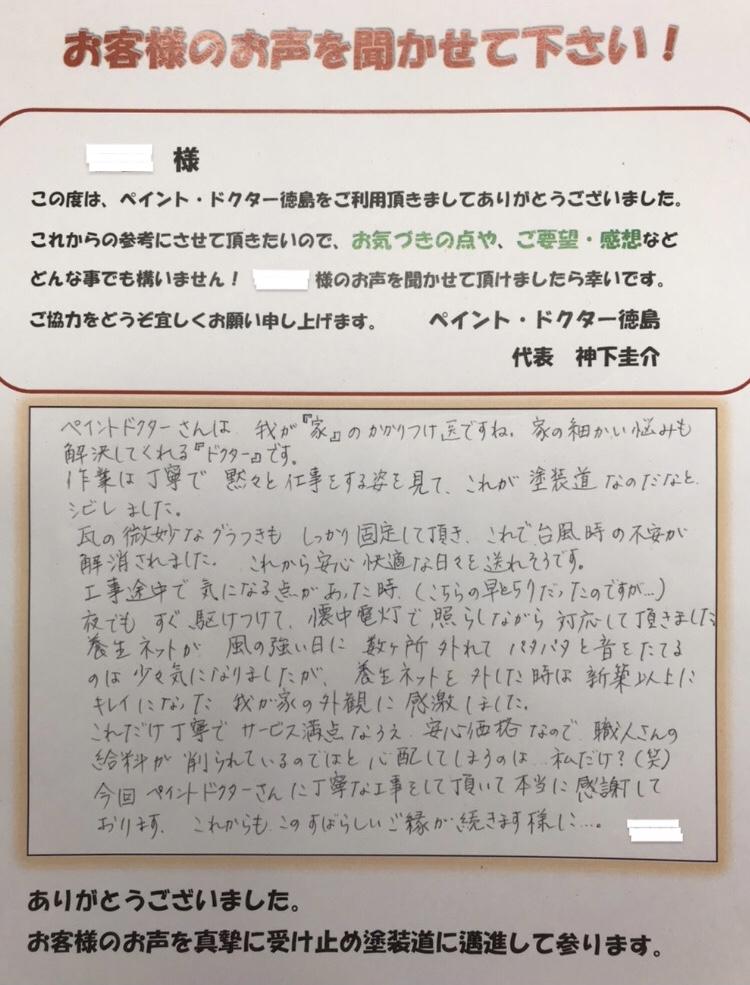 お客様のお声を聞かせて下さい!
様
この度は、ペイント・ドクター徳島をご利用頂きましてありがとうございました。
これからの参考にさせて頂きたいので、お気づきの点や、ご要望・感想など
どんな事でも構いません! 様のお声を聞かせて頂けましたら幸いです。
ご協力をどうぞ宜しくお願い申し上げます。 ペイント・ドクター徳島
代表 神下圭介
ペイントドクターさんは 我が『家』のかかりつけ医ですね。家の細かい悩みも
解決してくれる『ドクター』です。
作業は丁寧で 黙々と仕事をする姿を見て、これが塗装道なのだなと
シビレました。
瓦の微妙なグラつきも しっかり固定して頂き、これで台風時の不安が
解消されました。これから安心快適な日々を送れそうです。
工事途中で気になる点があった時、(こちらの早とちりだったのですが…)
夜でも すぐ駆けつけて、懐中電灯で照らしながら対応して頂きました
養生ネットが 風の強い日に 数ヶ所外れて パタパタと音をたてる
のは少々気になりましたが、養生ネットを外した時は新築以上に
キレイになった 我が家の外観に感激しました。
これだけ丁寧で サービス満点なうえ 安心価格なので、職人さんの
給料が削られているのではと心配してしまうのは 私だけ?(笑)
今回ペイントドクターさんに丁寧な工事をして頂いて本当に感謝して
おります。これからも このすばらしいご縁が続きます様に…。
ありがとうございました。
お客様のお声を真摯に受け止め塗装道に邁進して参ります。